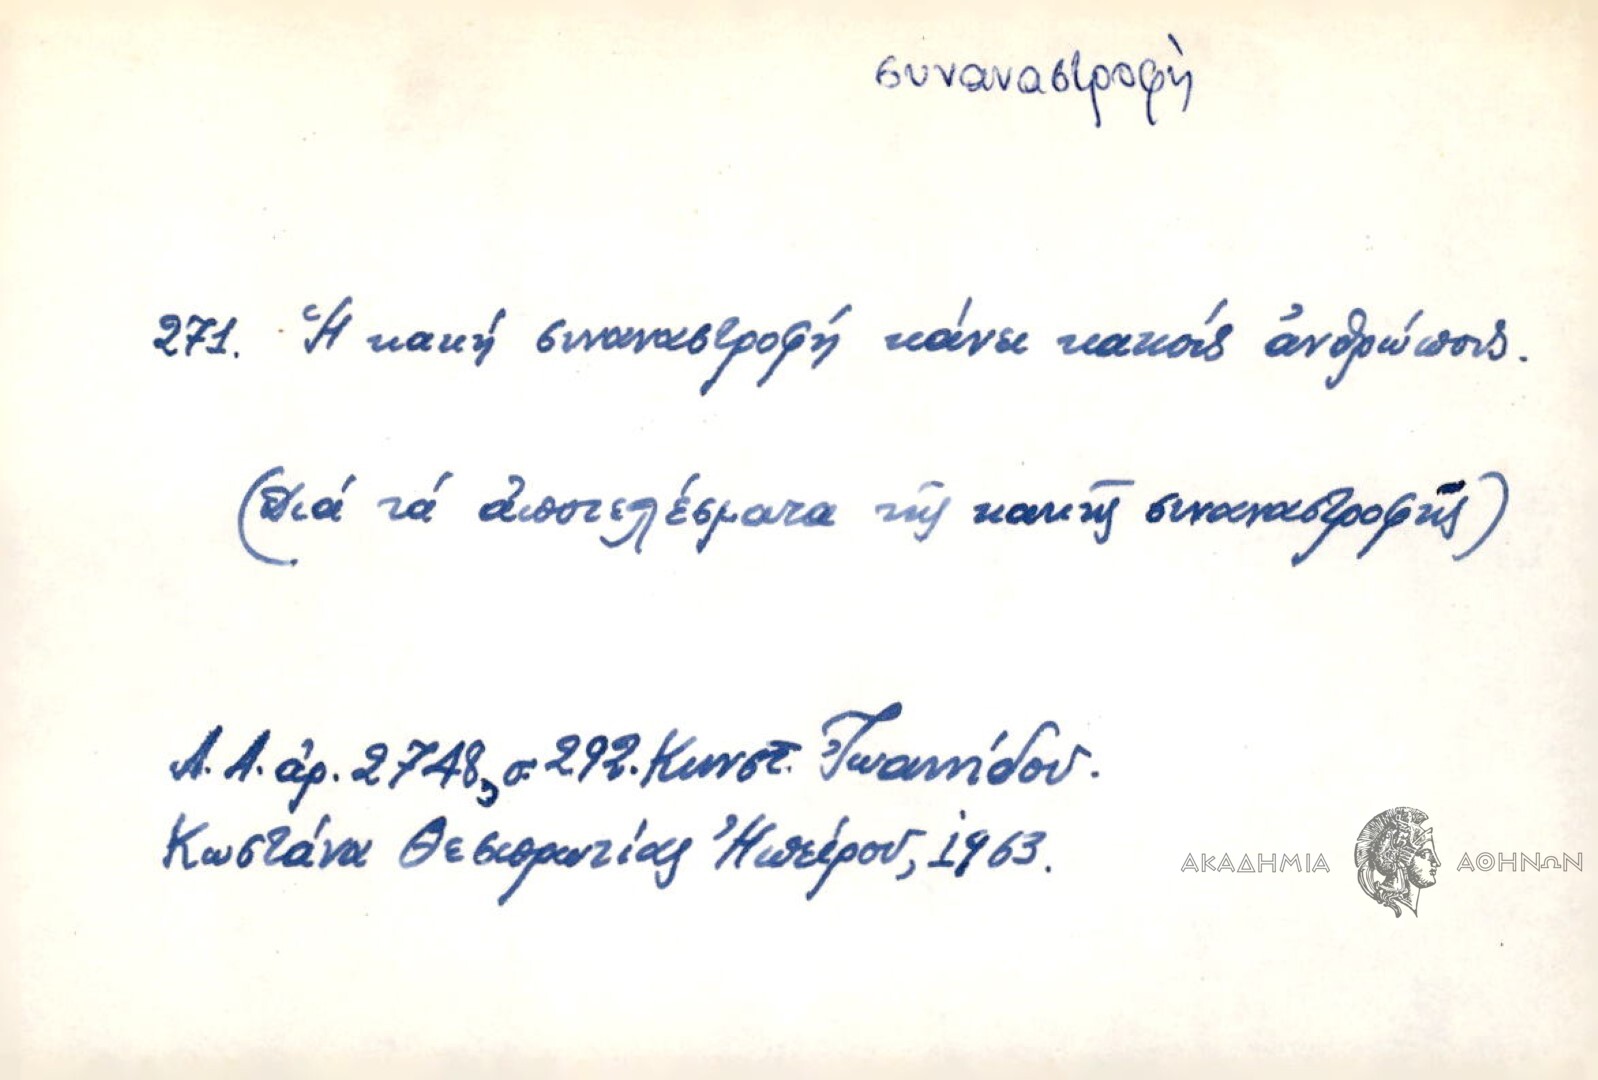 συναναστροφὴ
271. Ἡ κακή συναναστροφή κάνει κακούς ἀνθρώπους.
(Διά τά ἀποτελέσματα τῆς κακῆς συναναστροφῆς)
Λ. Α. ἀρ. 2748, σ. 292. Κωνστ. Ἰωαννίδου.
Κωστάνα Θεσπρωτίας Ἠπείρου, 1963.
ΑΚΑΔΗΜΙΑ ΑΘΗΝΩΝ